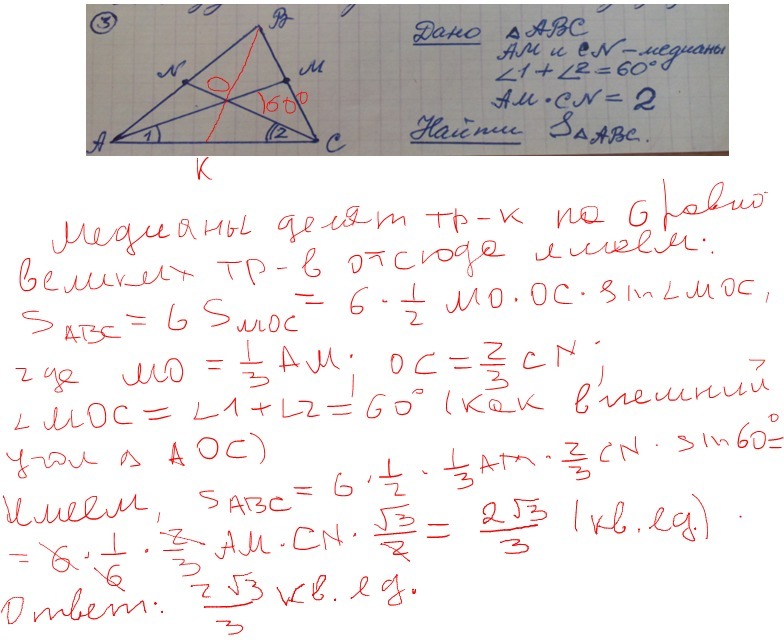 ③
B
N
O
M
60°
A
1
2
C
K
Дано △ABC
AM и CN – медианы
∠1 + ∠2 = 60°
AM · CN = 2
Найти S△ABC.
Медианы делят тр-к на 6 равно
великих тр-в отсюда имеем:
S_ABC = 6 S_MOC = 6 · 1/2 MO · OC · sin∠MOC,
где MO = 1/3 AM; OC = 2/3 CN;
∠MOC = ∠1 + ∠2 = 60° (как внешний
угол △ AOC)
Имеем, S_ABC = 6 · 1/2 · 1/3 AM · 2/3 CN · sin60° =
= 6 · 1/6 · 2/3 AM · CN · √3/2 = 2√3/3 (кв. ед.)
Ответ: 2√3/3 кв. ед.